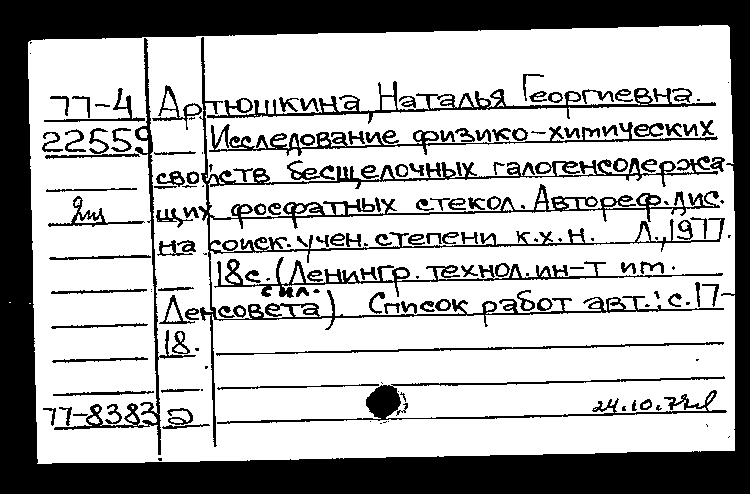 77-4 Артюшкина, Наталья Георгиевна.
22559 Исследование физико-химических
свойств бесщелочных галогенсодержа-
щих фосфатных стекол. Автореф. дис.
на соиск. учен. степени к.х.н. Л., 1977.
18с. (Ленингр. технол. ин-т им.
Ленсовета). Список работ авт.: с.17-
с ил.
18.
77-8383
24.10.77